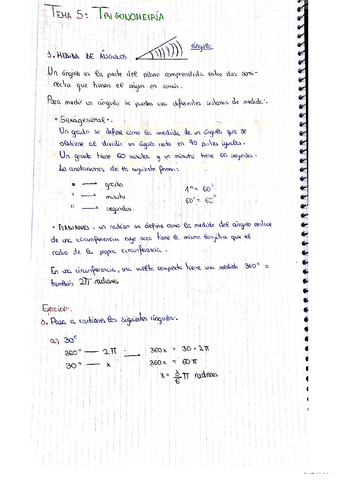 TEMA 5: TRIGONOMETRÍA
1. MEDIDA DE ÁNGULOS
ángulo
Un ángulo es la parte del plano comprendida entre dos semi-
rectas que tienen el origen en común.
Para medir un ángulo se pueden usar diferentes sistemas de medida:
• Sexagesimal.
Un grado se define como la medida de un ángulo que se
obtiene al dividir un ángulo recto en 90 partes iguales.
Un grado tiene 60 minutos y un minuto tiene 60 segundos.
Lo anotaremos de la siguiente forma:
° → grado
' → minuto
" → segundos
1° = 60'
60' = 60"
• RADIANES: un radian se define como la medida del ángulo central
de una circunferencia cuyo arco tiene la misma longitud que el
radio de la propia circunferencia.
En una circunferencia, una vuelta completa tiene una medida 360° =
también 2π radianes
Ejercicio:
1. Pasa a radianes los siguientes ángulos.
a) 30°
360° — 2π → 360x = 30 · 2π
30° — x 360x = 60π
x = π radianes